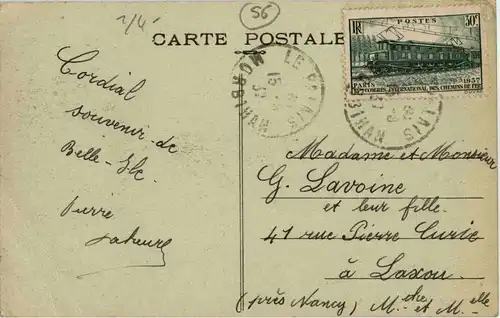 1/4
56
CARTE POSTALE
RF POSTES 30c
PARIS 1937
CONGRÈS INTERNATIONAL DES CHEMINS DE FER
LE PALAIS
MORBIHAN
15
37
LE PALAIS
MORBIHAN
Cordial
souvenir de
Belle-Ile
Pierre
Madame et Monsieur
G. Lavoine
et leur fille.
41 rue Pierre Curie
à Laxou.
(près Nancy) M.the et M.elle